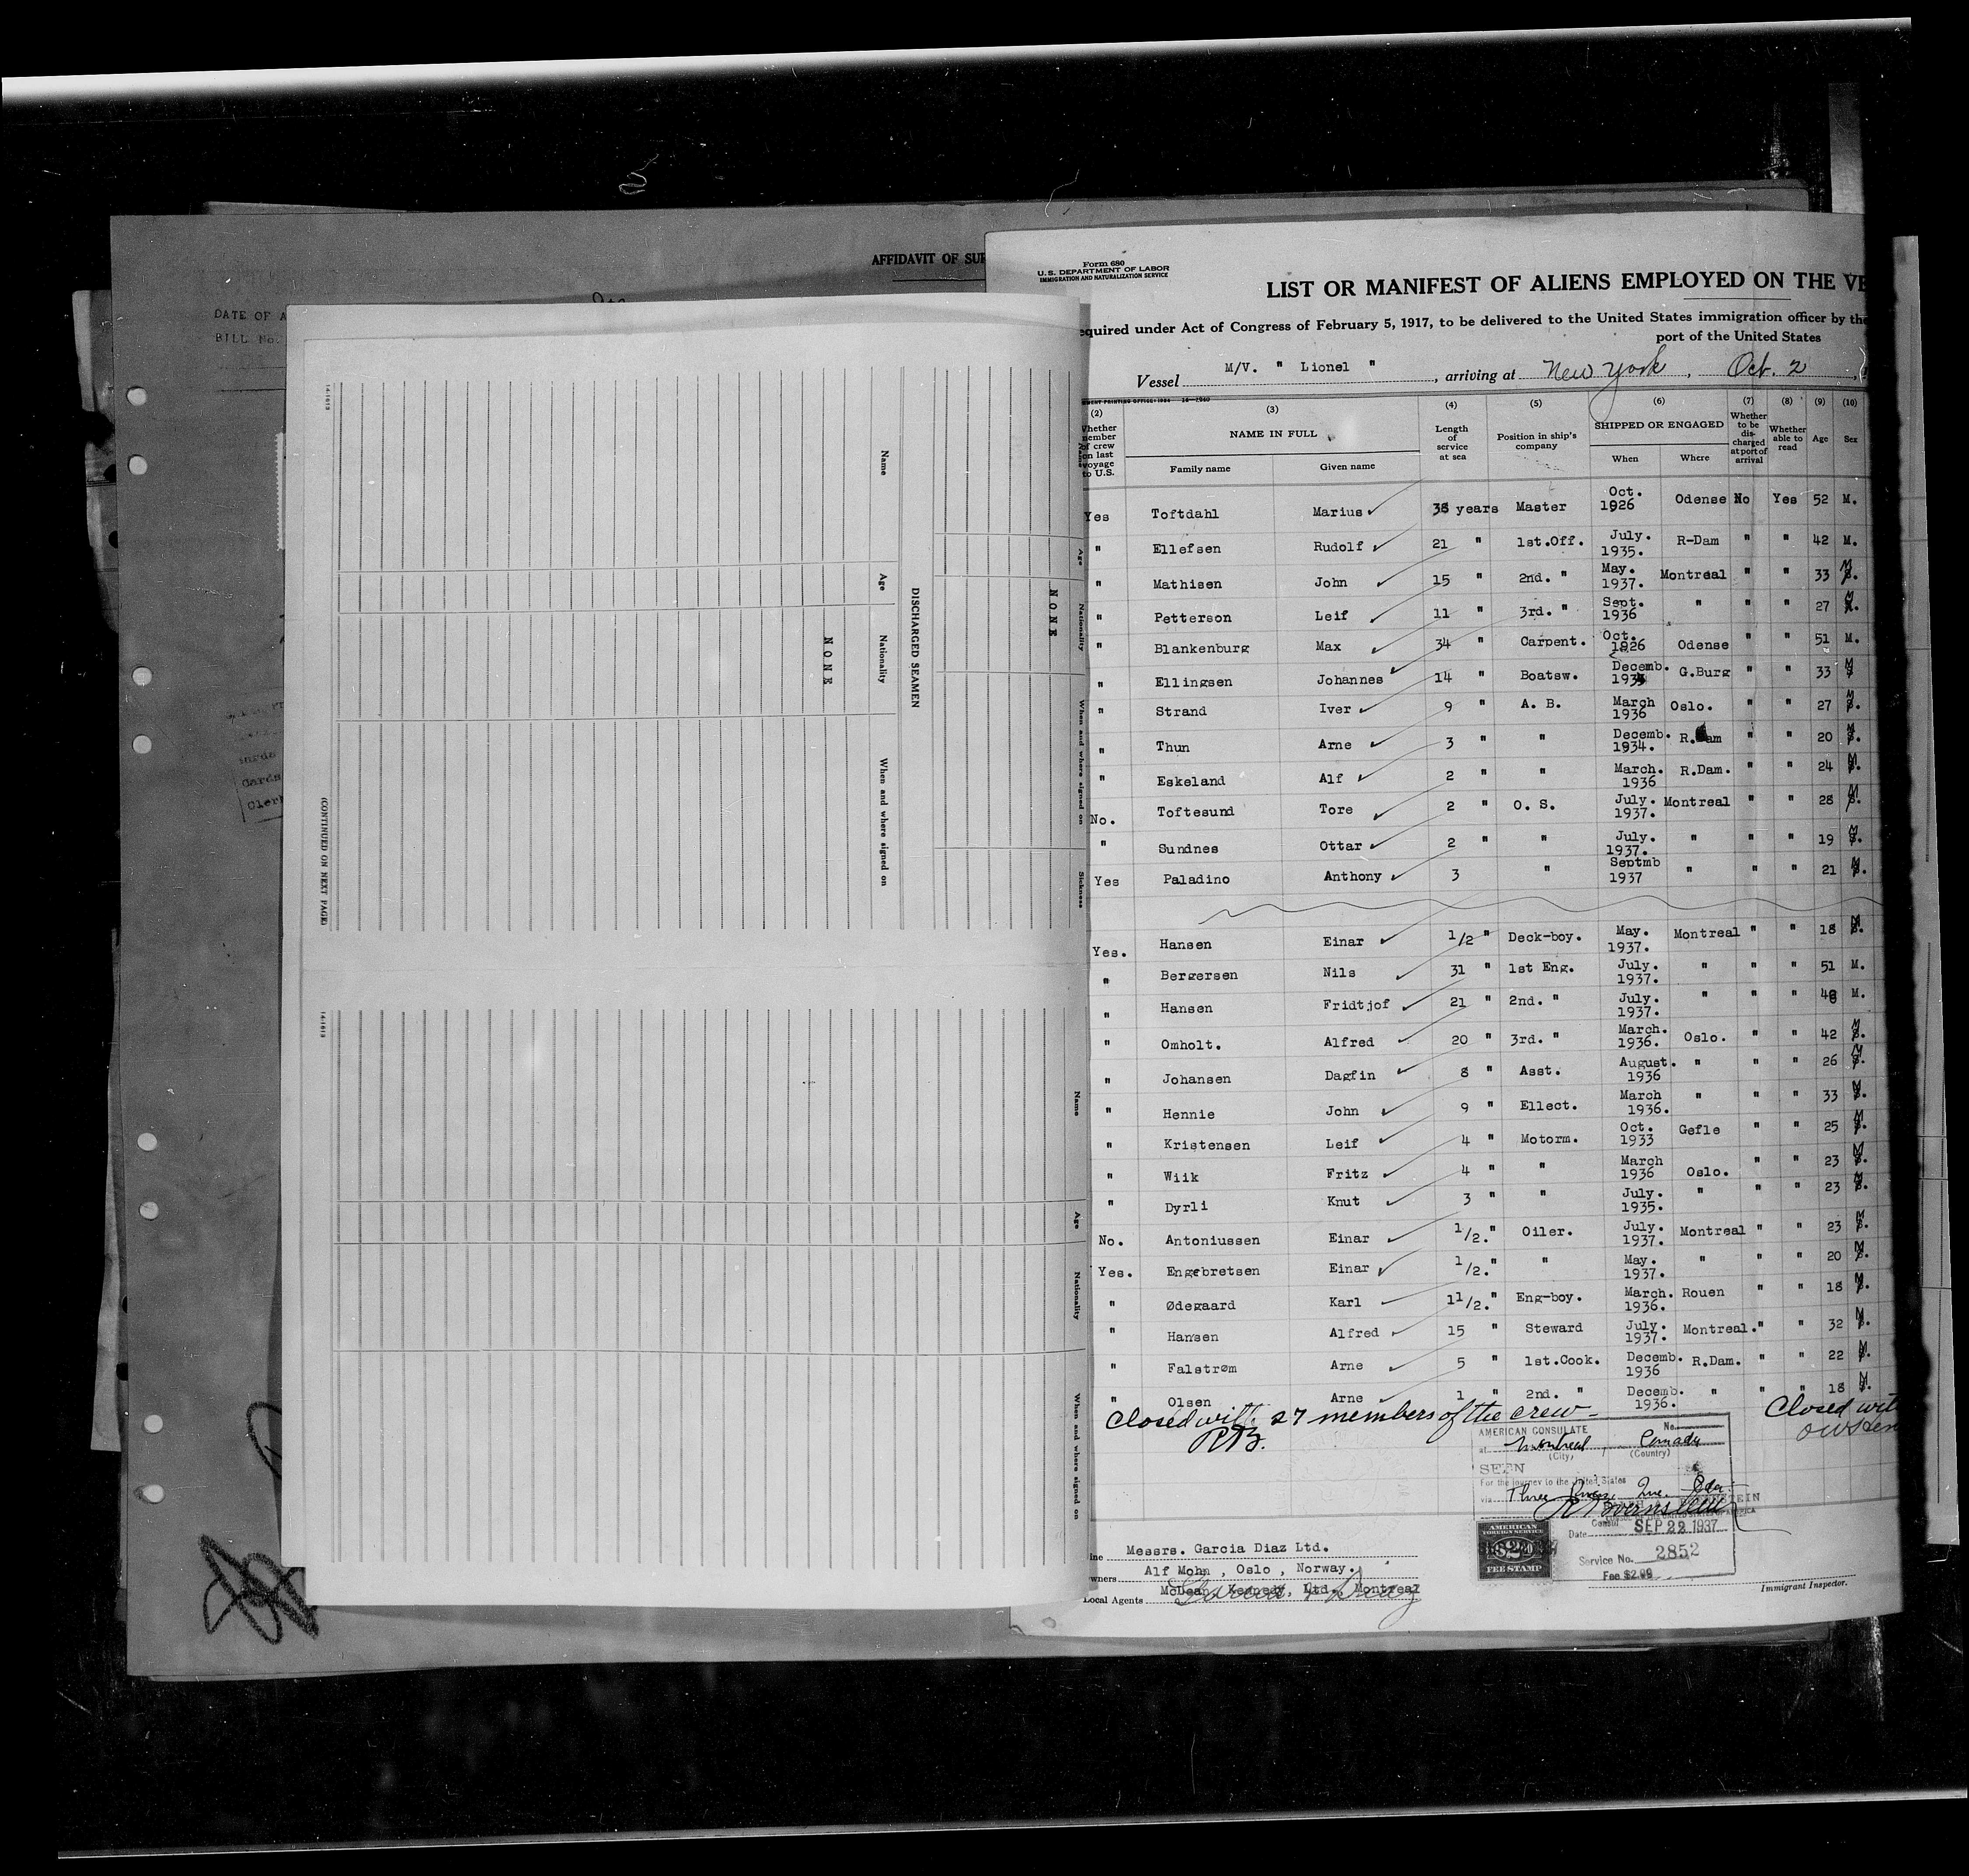 AFFIDAVIT OF
DATE OF A
BILL No.
Cards
Clerk
14-1613
Name
Age
Nationality
When and where signed on
NONE
DISCHARGED SEAMEN
NONE
Age
Nationality
When and where signed on
Sickness
(CONTINUED ON NEXT PAGE)
14-1613
Name
Age
Nationality
When and where signed on
Form 680
U. S. DEPARTMENT OF LABOR
IMMIGRATION AND NATURALIZATION SERVICE
LIST OR MANIFEST OF ALIENS EMPLOYED ON THE VE
equired under Act of Congress of February 5, 1917, to be delivered to the United States immigration officer by the
port of the United States
Vessel M/V. " Lionel " , arriving at New York , Oct. 2 ,
(2) (3) (4) (5) (6) (7) (8) (9) (10)
Whether member of crew on last voyage to U.S. NAME IN FULL Length of service at sea Position in ship's company SHIPPED OR ENGAGED Whether to be discharged at port of arrival Whether able to read Age Sex
Family name Given name When Where
Yes Toftdahl Marius years Master Oct. 1926 Odense No Yes 52 M.
" Ellefsen Rudolf 21 " 1st.Off. July. 1935. R-Dam " " 42 M.
" Mathisen John 15 " 2nd. " May. 1937. Montreal " " 33 M.
" Petterson Leif 11 " 3rd. " Sept. 1936 " " " 27 M.
" Blankenburg Max 34 " Carpent. Oct. 1926 Odense " " 51 M.
" Ellingsen Johannes 14 " Boatsw. Decemb. G.Burg " " 33 M
" Strand Iver 9 " A. B. March 1936 Oslo. " " 27 M.
" Thun Arne 3 " " Decemb. 1934. R.Dam " " 20 M.
" Eskeland Alf 2 " " March. 1936 R.Dam. " " 24 M.
No. Toftesund Tore 2 " O. S. July. 1937. Montreal " " 28 M.
" Sundnes Ottar 2 " " July. 1937. " " " 19 M.
Yes Paladino Anthony 3 " Septmb 1937 " " " 21 M.
Yes. Hansen Einar 1/2 " Deck-boy. May. 1937. Montreal " " 18 M.
" Bergersen Nils 31 " 1st Eng. July. 1937. " " " 51 M.
" Hansen Fridtjof 21 " 2nd. " July. 1937. " " " M.
" Omholt. Alfred 20 " 3rd. " March. 1936. Oslo. " " 42 M.
" Johansen Dagfin 8 " Asst. August. 1936 " " " 26 M.
" Hennie John 9 " Ellect. March 1936. " " " 33 M.
" Kristensen Leif 4 " Motorm. Oct. 1933 Gefle " " 25 M.
" Wiik Fritz 4 " " March 1936 Oslo. " " 23 M.
" Dyrli Knut 3 " " July. 1935. " " " 23 M.
No. Antoniussen Einar 1/2." Oiler. July. 1937. Montreal " " 23 M.
Yes. Engebretsen Einar 1/2." " May. 1937. " " " 20 M.
" Ødegaard Karl 11/2." Eng-boy. March. 1936. Rouen " " 18 M.
" Hansen Alfred 15 " Steward July. 1937. Montreal. " " 32 M.
" Falstrøm Arne 5 " 1st.Cook. Decemb. 1936 R.Dam. " " 22 M.
" Olsen Arne 1 " 2nd. " Decemb. 1936. " " " 18 M.
Closed with 27 members of the crew-
RB.
Closed wit
AMERICAN CONSULATE No.
at Montreal, Canada
(City) (Country)
SEEN
For the journey to the United States
via Three Rivers Que.
Consul
Date SEP 22 1937
Service No. 2852
Fee $2.00
AMERICAN
FOREIGN SERVICE
$2
FEE STAMP
ine Messrs. Garcia Diaz Ltd.
wners Alf Mohn , Oslo , Norway.
Local Agents McLean, Kennedy, Ltd. Montreal
Garcia & Diaz
Immigrant Inspector.